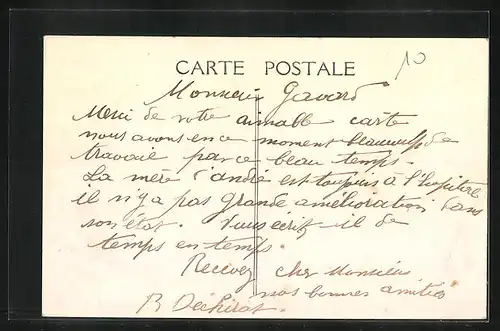 10
CARTE POSTALE
Monsieur Gavard
Merci de votre aimable carte
nous avons en ce moment beaucoup de
travail par ce beau temps.
La mère d'andré est toujours à l'hopital
il n'y a pas grande amélioration dans
son état. Vous écrit-il de
temps en temps.
Recevez cher Monsieur
nos bonnes amitiés